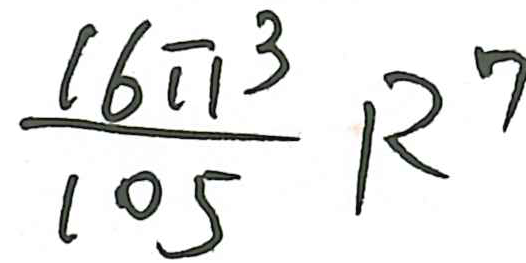 \frac{16\pi^3}{105} R^7